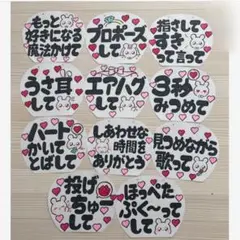 もっと
好きになる
魔法かけて
プロポーズ
して
指さして
すき
って言って
うさ耳
して
エアハグ
して
3秒
みつめて
ハート
かいて
とばして
しあわせな
時間を
ありがとう
見つめながら
歌って
投げ
ちゅー
して
ほっぺた
ぷく〜って
して